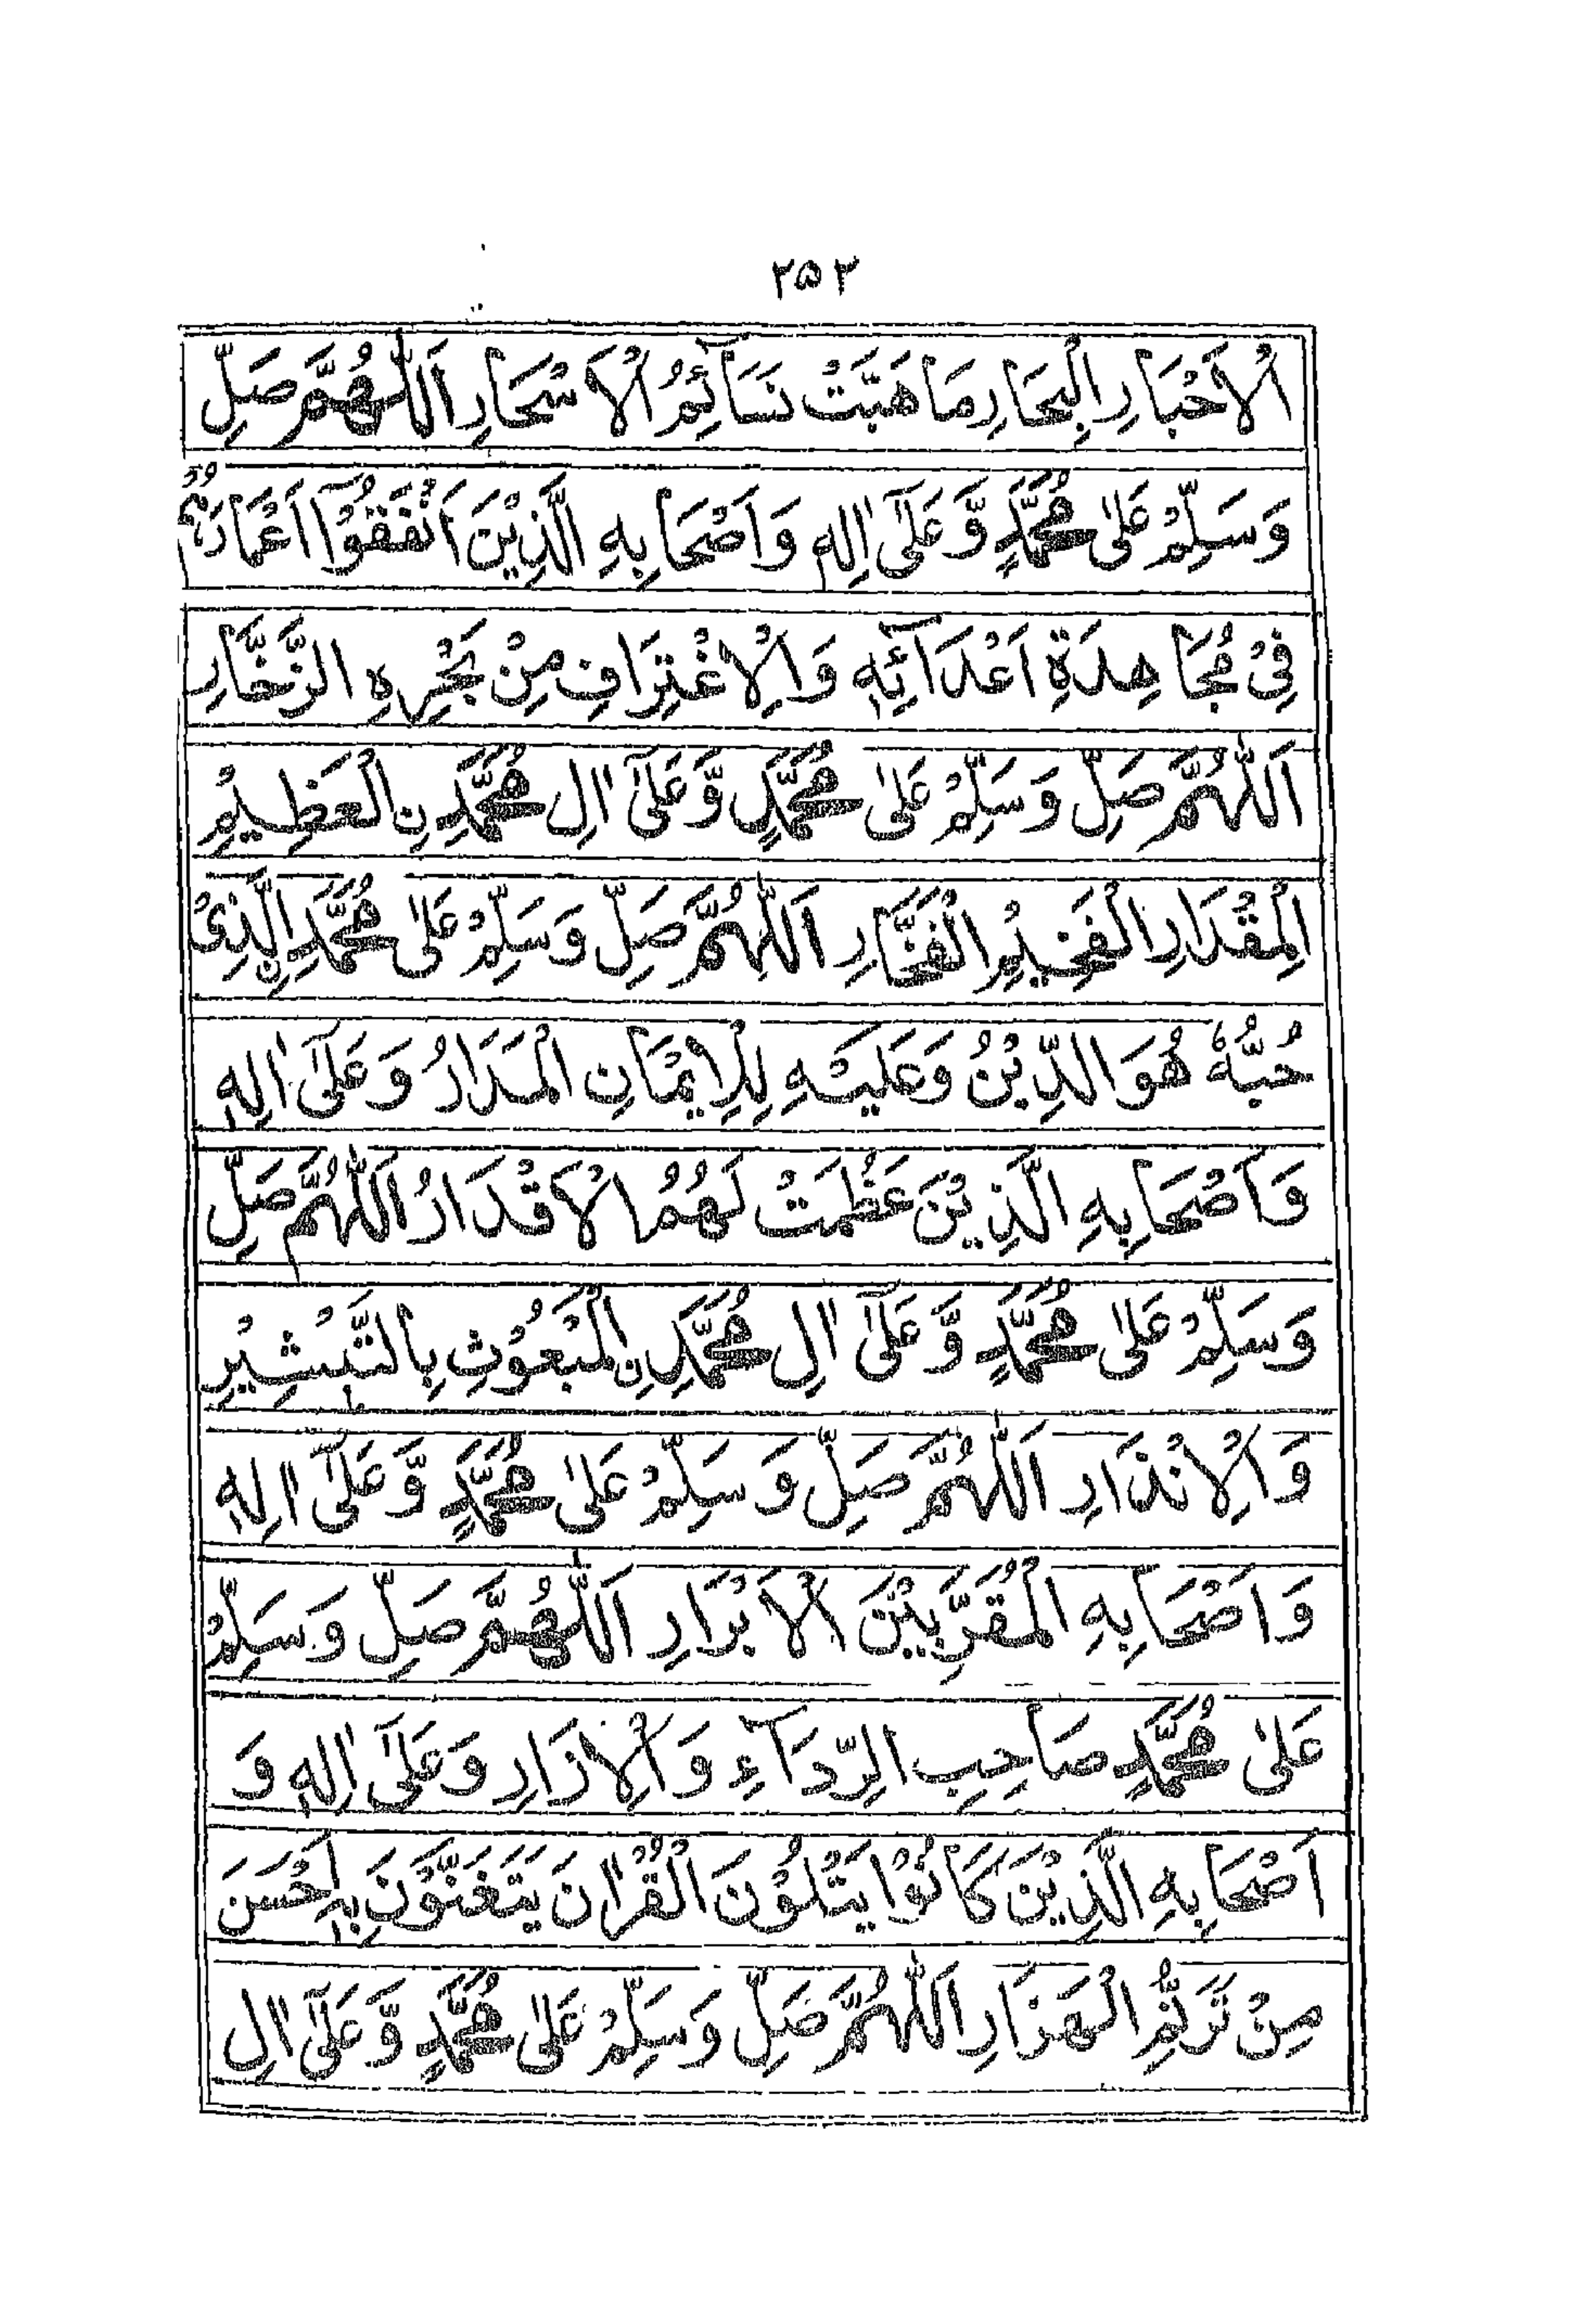 ۲۵۲
الْاَحْبَارِ الْبِحَارِ مَا هَبَّتْ نَسَآئِمُ الْاَسْحَارِ اَللّٰهُمَّ صَلِّ
وَسَلِّمْ عَلٰى مُحَمَّدٍ وَّعَلٰٓى اٰلِهٖ وَاَصْحَابِهِ الَّذِيْنَ اَنْفَقُوْٓا اَعْمَارَهُمْ
فِيْ مُجَاهِدَةِ اَعْدَآئِهٖ وَالْاِغْتِرَافِ مِنْ بَحْرِهِ الزَّخَّارِ
اَللّٰهُمَّ صَلِّ وَسَلِّمْ عَلٰى مُحَمَّدٍ وَّعَلٰٓى اٰلِ مُحَمَّدِ نِ الْعَظِيْمِ
الْمِقْدَارِ الْفَخِيْمِ الْفَخَّارِ اَللّٰهُمَّ صَلِّ وَسَلِّمْ عَلٰى مُحَمَّدِ نِ الَّذِىْ
حُبُّهٗ هُوَ الدِّيْنُ وَعَلَيْهِ لِلْاِيْمَانِ الْمَدَارُ وَعَلٰٓى اٰلِهٖ
وَاَصْحَابِهِ الَّذِيْنَ عَظُمَتْ لَهُمُ الْاَقْدَارُ اَللّٰهُمَّ صَلِّ
وَسَلِّمْ عَلٰى مُحَمَّدٍ وَّعَلٰٓى اٰلِ مُحَمَّدِ نِ الْمَبْعُوْثِ بِالتَّبْشِيْرِ
وَالْاِنْذَارِ اَللّٰهُمَّ صَلِّ وَسَلِّمْ عَلٰى مُحَمَّدٍ وَّعَلٰٓى اٰلِهٖ
وَاَصْحَابِهِ الْمُقَرَّبِيْنَ الْاَبْرَارِ اَللّٰهُمَّ صَلِّ وَسَلِّمْ
عَلٰى مُحَمَّدٍ صَاحِبِ الرِّدَآءِ وَالْاِزَارِ وَعَلٰٓى اٰلِهٖ وَ
اَصْحَابِهِ الَّذِيْنَ كَانُوْا يَتْلُوْنَ الْقُرْاٰنَ يَتَغَنَّوْنَ بِهٖ اَحْسَنَ
مِنْ تَرَنُّمِ الْهَزَارِ اَللّٰهُمَّ صَلِّ وَسَلِّمْ عَلٰى مُحَمَّدٍ وَّعَلٰٓى اٰلِ